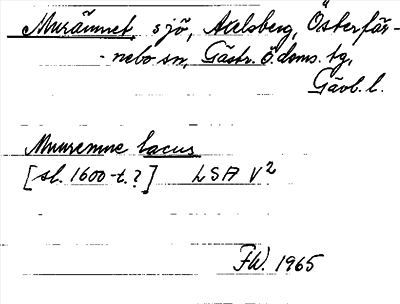 Murännet, sjö, Axelsberg, Österfär-
-nebo sn, Gästr. ö. doms. tg,
Gävl. l.
Muuremne lacus
[sl. 1600-t.?] LSA V2
FW. 1965